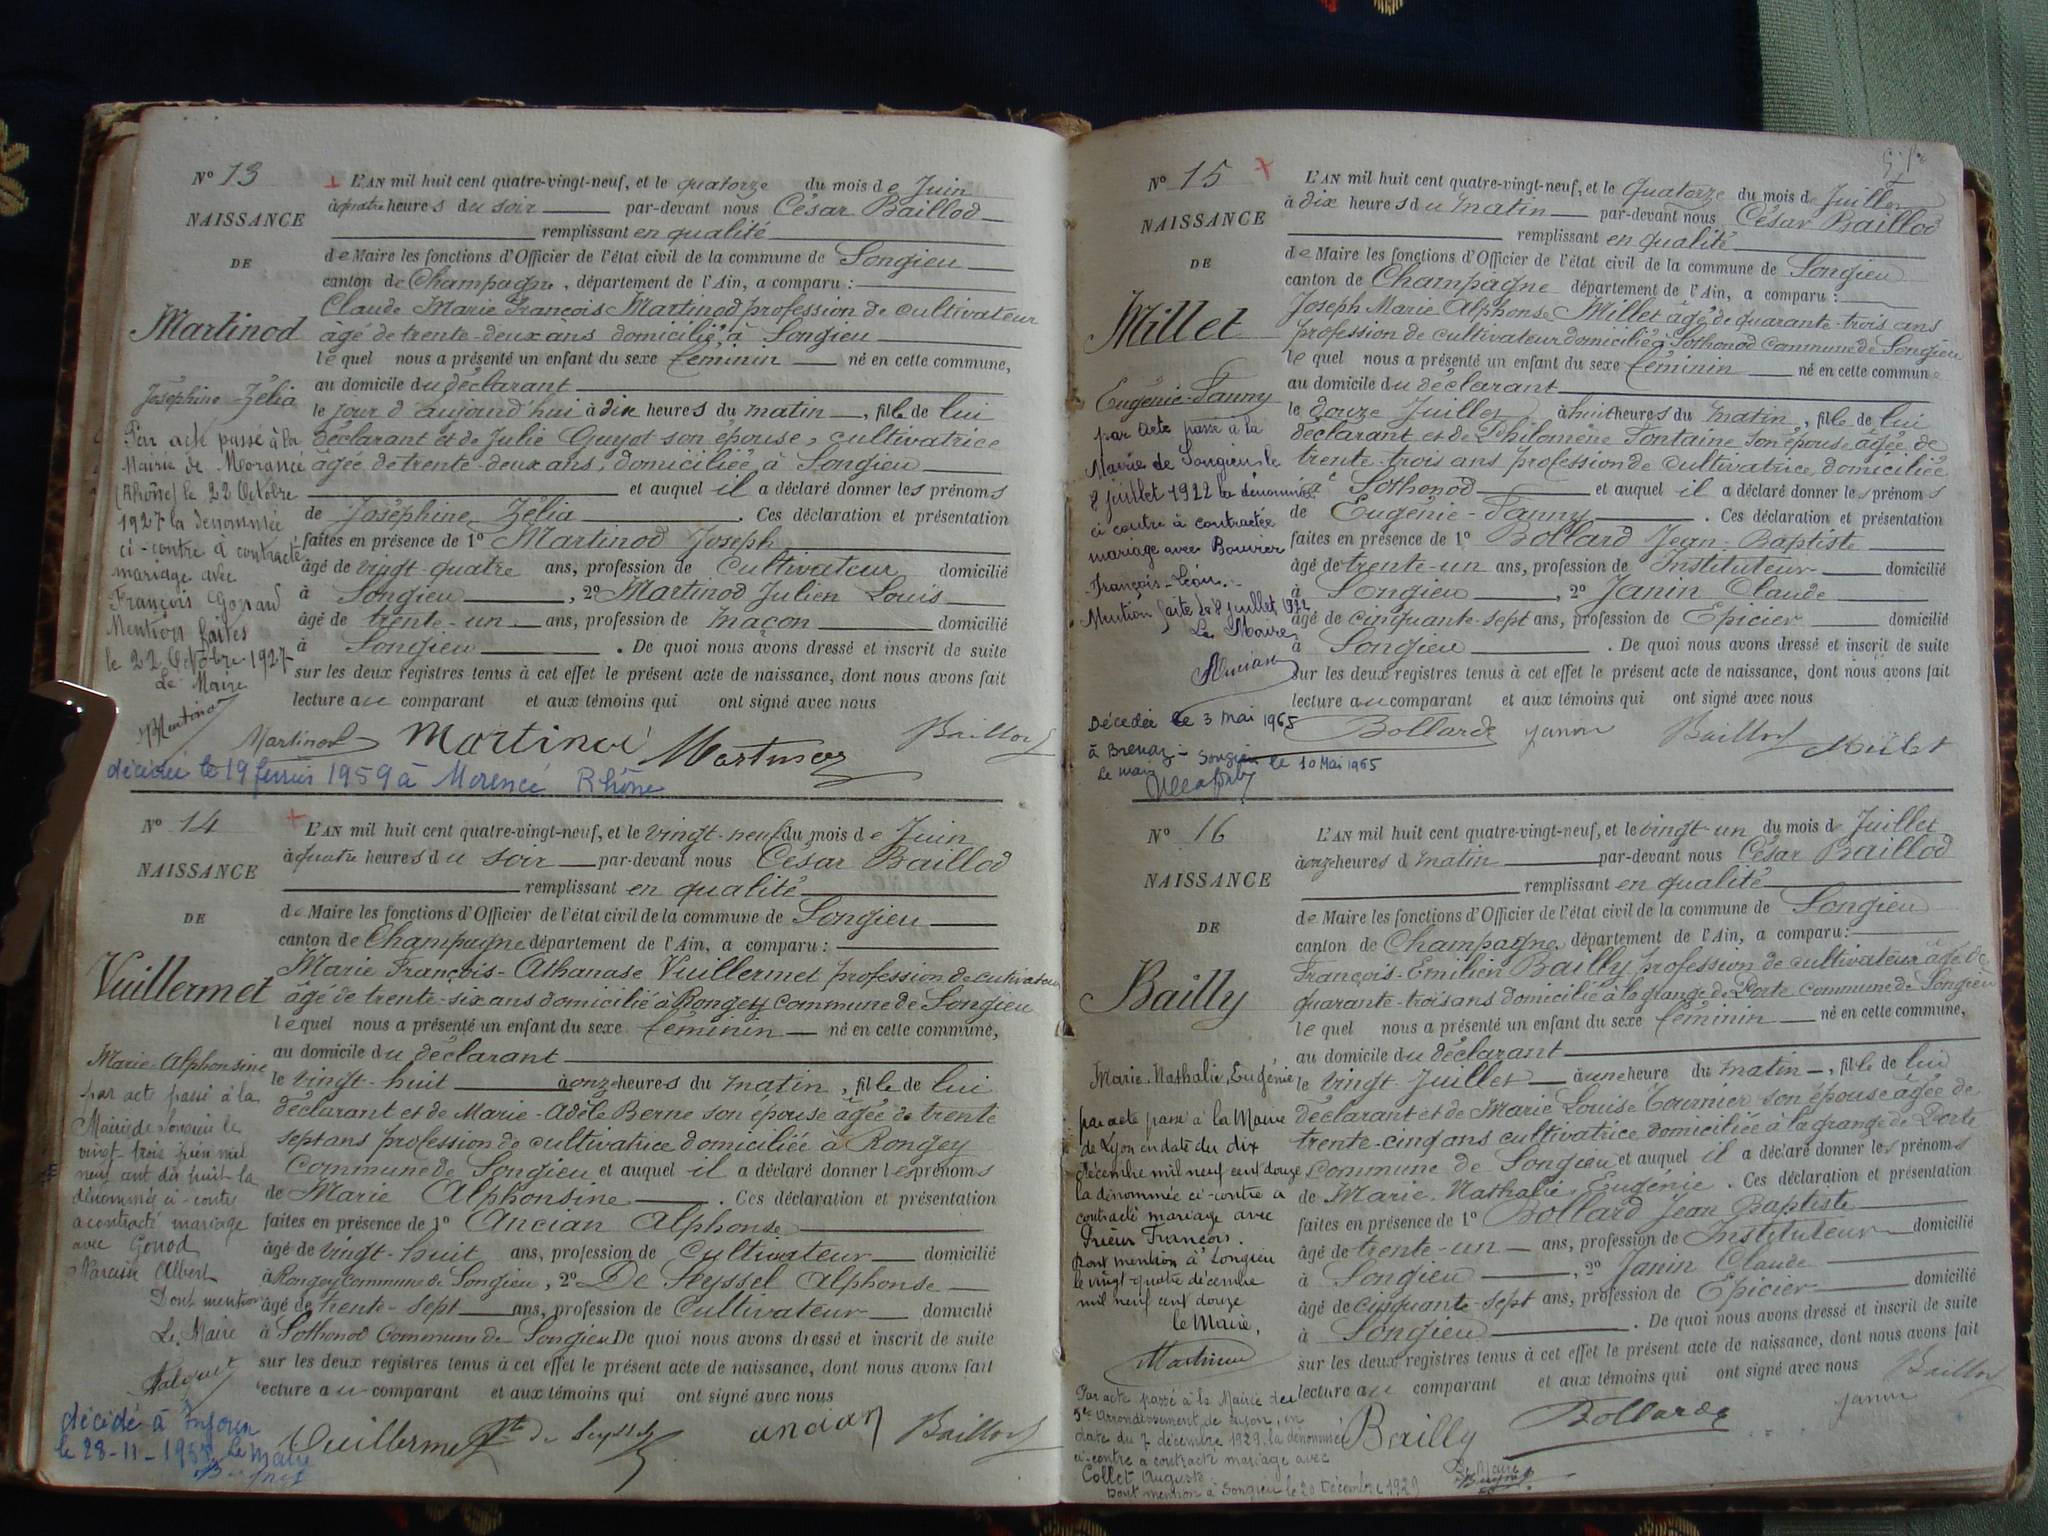 Nº 13
NAISSANCE
DE
Martinod
Joséphine Zélia
Par acte passé à la
Mairie de Morancé
(Rhône) le 22 Octobre
1927 la dénommée
ci-contre à contracté
mariage avec
François Gonard
Mention faites
le 22 Octobre 1927
Le Maire
Martinod
L'AN mil huit cent quatre-vingt-neuf, et le quatorze du mois de Juin
à quatre heures du soir par-devant nous César Baillod
remplissant en qualité
de Maire les fonctions d'Officier de l'état civil de la commune de Songieu
canton de Champagne, département de l'Ain, a comparu :
Claude Marie François Martinod profession de cultivateur
âgé de trente-deux ans domicilié à Songieu
lequel nous a présenté un enfant du sexe féminin né en cette commune,
au domicile du déclarant
le jour d'aujourd'hui à dix heures du matin, fille de lui
déclarant et de Julie Guyot son épouse, cultivatrice
âgée de trente-deux ans, domiciliée à Songieu
et auquel il a déclaré donner les prénoms
de Joséphine Zélia. Ces déclaration et présentation
faites en présence de 1º Martinod Joseph
âgé de vingt-quatre ans, profession de Cultivateur domicilié
à Songieu, 2º Martinod Julien Louis
âgé de trente-un ans, profession de maçon domicilié
à Songieu. De quoi nous avons dressé et inscrit de suite
sur les deux registres tenus à cet effet le présent acte de naissance, dont nous avons fait
lecture au comparant et aux témoins qui ont signé avec nous
Martinod Martinod Martinod Baillod
décédée le 19 février 1959 à Morancé Rhône
Nº 14
NAISSANCE
DE
Vuillermet
Marie Alphonsine
par acte passé à la
Mairie de Songieu le
vingt-trois juin mil
neuf cent dix huit la
dénommée ci-contre
a contracté mariage
avec Gonod
Narcisse Albert
Dont mention
Le Maire
décédé à Injoux
le 28-11-
le Maire
L'AN mil huit cent quatre-vingt-neuf, et le vingt-neuf du mois de Juin
à quatre heures du soir par-devant nous César Baillod
remplissant en qualité
de Maire les fonctions d'Officier de l'état civil de la commune de Songieu
canton de Champagne département de l'Ain, a comparu :
Marie François-Athanase Vuillermet profession de cultivateur
âgé de trente-six ans domicilié à Rongey commune de Songieu
lequel nous a présenté un enfant du sexe féminin né en cette commune,
au domicile du déclarant
le vingt-huit à onze heures du matin, fille de lui
déclarant et de Marie-Adèle Berne son épouse âgée de trente
sept ans profession de cultivatrice domiciliée à Rongey
Commune de Songieu et auquel il a déclaré donner les prénoms
de Marie Alphonsine. Ces déclaration et présentation
faites en présence de 1º Ancian Alphonse
âgé de vingt-huit ans, profession de Cultivateur domicilié
à Rongey commune de Songieu, 2º De Seyssel Alphonse
âgé de trente-sept ans, profession de Cultivateur domicilié
à Sothonod Commune de Songieu De quoi nous avons dressé et inscrit de suite
sur les deux registres tenus à cet effet le présent acte de naissance, dont nous avons fait
lecture au comparant et aux témoins qui ont signé avec nous
Vuillermet de Seyssel ancian Baillod
Nº 15
NAISSANCE
DE
Millet
Eugénie-Fanny
par acte passé à la
Mairie de Songieu le
8 juillet 1922 la dénommée
ci contre à contractée
mariage avec Bouvier
François-Léon.
Mention faite le 8 juillet 1922
Le Maire
Ancian
Décédée le 3 mai 1965
à Brenaz - Songieu le 10 Mai 1965
Le maire
L'AN mil huit cent quatre-vingt-neuf, et le quatorze du mois de Juillet
à dix heures du matin par-devant nous César Baillod
remplissant en qualité
de Maire les fonctions d'Officier de l'état civil de la commune de Songieu
canton de Champagne département de l'Ain, a comparu :
Joseph Marie Alphonse Millet âgé de quarante-trois ans
profession de cultivateur domicilié à Sothonod Commune de Songieu
lequel nous a présenté un enfant du sexe féminin né en cette commune
au domicile du déclarant
le douze Juillet à huit heures du matin, fille de lui
déclarant et de Philomène Fontaine son épouse âgée de
trente-trois ans profession de cultivatrice domiciliée
à Sothonod et auquel il a déclaré donner les prénoms
de Eugénie-Fanny. Ces déclaration et présentation
faites en présence de 1º Bollard Jean-Baptiste
âgé de trente-un ans, profession de Instituteur domicilié
à Songieu, 2º Janin Claude
âgé de cinquante-sept ans, profession de Epicier domicilié
à Songieu. De quoi nous avons dressé et inscrit de suite
sur les deux registres tenus à cet effet le présent acte de naissance, dont nous avons fait
lecture au comparant et aux témoins qui ont signé avec nous
Bollard Janin Baillod Millet
Nº 16
NAISSANCE
DE
Bailly
Marie-Nathalie, Eugénie
par acte passé à la Mairie
de Lyon en date du dix
décembre mil neuf cent douze
la dénommée ci-contre a
contracté mariage avec
Prieur François.
Dont mention à Songieu
le vingt-quatre décembre
mil neuf cent douze
le Maire,
Martinod
Par acte passé à la Mairie du
5e arrondissement de Lyon, en
date du 7 décembre 1929, la dénommée
ci-contre a contracté mariage avec
Collet Auguste
Dont mention à Songieu le 20 Décembre 1929
Le Maire
L'AN mil huit cent quatre-vingt-neuf, et le vingt-un du mois de Juillet
à onze heures d matin par-devant nous César Baillod
remplissant en qualité
de Maire les fonctions d'Officier de l'état civil de la commune de Songieu
canton de Champagne département de l'Ain, a comparu :
François-Emilien Bailly profession de cultivateur âgé de
quarante-trois ans domicilié à la grange de Porte commune de Songieu
lequel nous a présenté un enfant du sexe féminin né en cette commune,
au domicile du déclarant
le vingt Juillet à une heure du matin, fille de lui
déclarant et de Marie Louise Tournier son épouse âgée de
trente-cinq ans cultivatrice domiciliée à la grange de Porte
Commune de Songieu et auquel il a déclaré donner les prénoms
de Marie, Nathalie, Eugénie. Ces déclaration et présentation
faites en présence de 1º Bollard Jean Baptiste
âgé de trente-un ans, profession de Instituteur domicilié
à Songieu, 2º Janin Claude
âgé de cinquante-sept ans, profession de Epicier domicilié
à Songieu. De quoi nous avons dressé et inscrit de suite
sur les deux registres tenus à cet effet le présent acte de naissance, dont nous avons fait
lecture au comparant et aux témoins qui ont signé avec nous
Bailly Bollard Janin Baillod